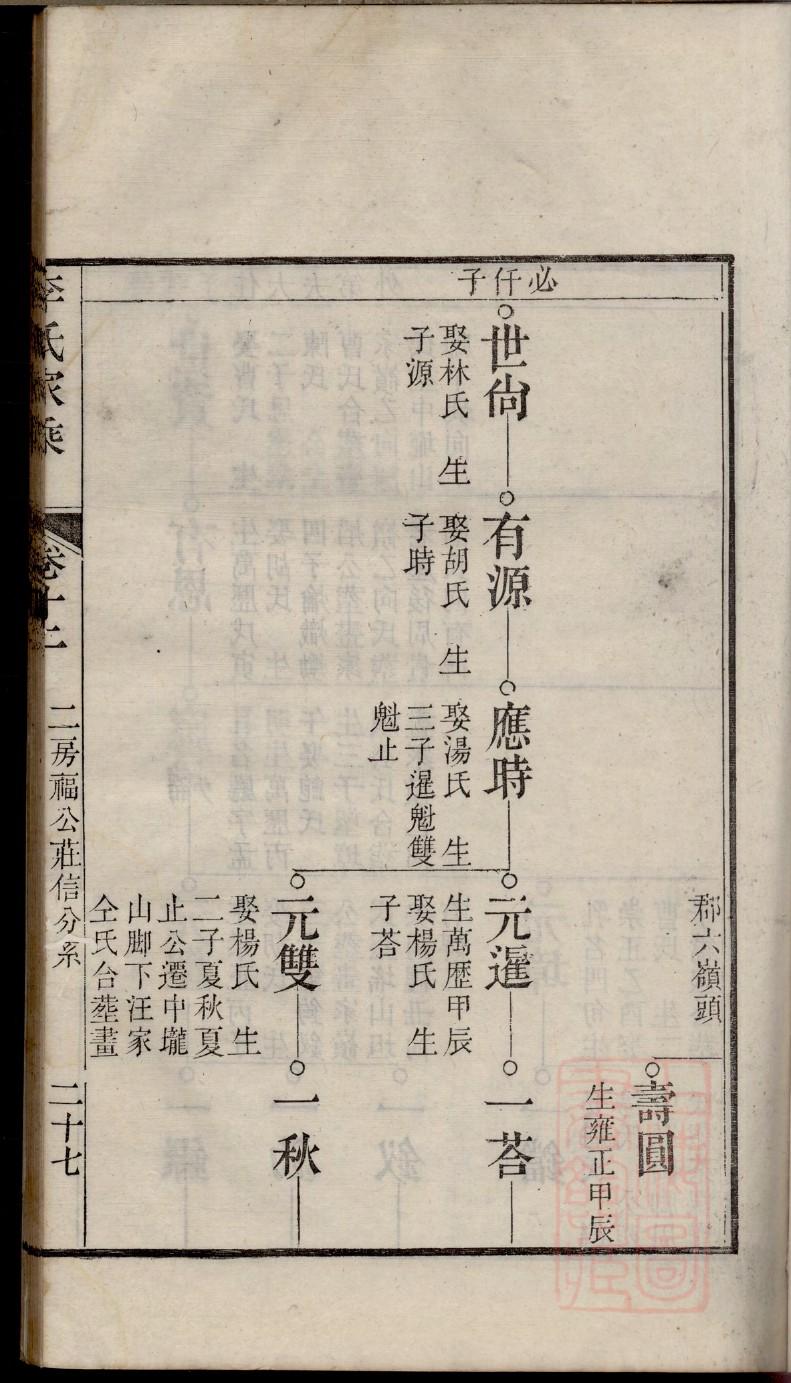 郡六嶺頭
壽圓
生雍正甲辰
必仟子
世尙
娶林氏　生
子源
有源
娶胡氏　生
子時
應時
娶湯氏　生
三子暹魁雙
魁止
元暹
生萬歷甲辰
娶楊氏　生
子荅
一荅
元雙
娶楊氏　生
二子夏秋夏
止公遷中壠
山脚下汪家
仝氏合塟畫
一秋
李氏家乘
卷十二
二房福公莊信分系
二十七